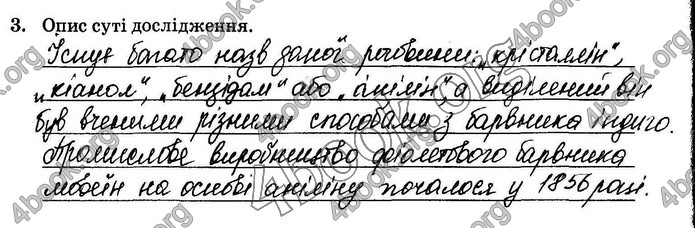 3. Опис суті дослідження.
Існує багато назв даної речовини: „крісталлін",
„кіанол", „бензідам" або „анілін", а виділений він
був вченими різними способами з барвника індиго.
Промислове виробництво фіолетового барвника
мовеїн на основі аніліну почалося у 1856 році.
4book.org